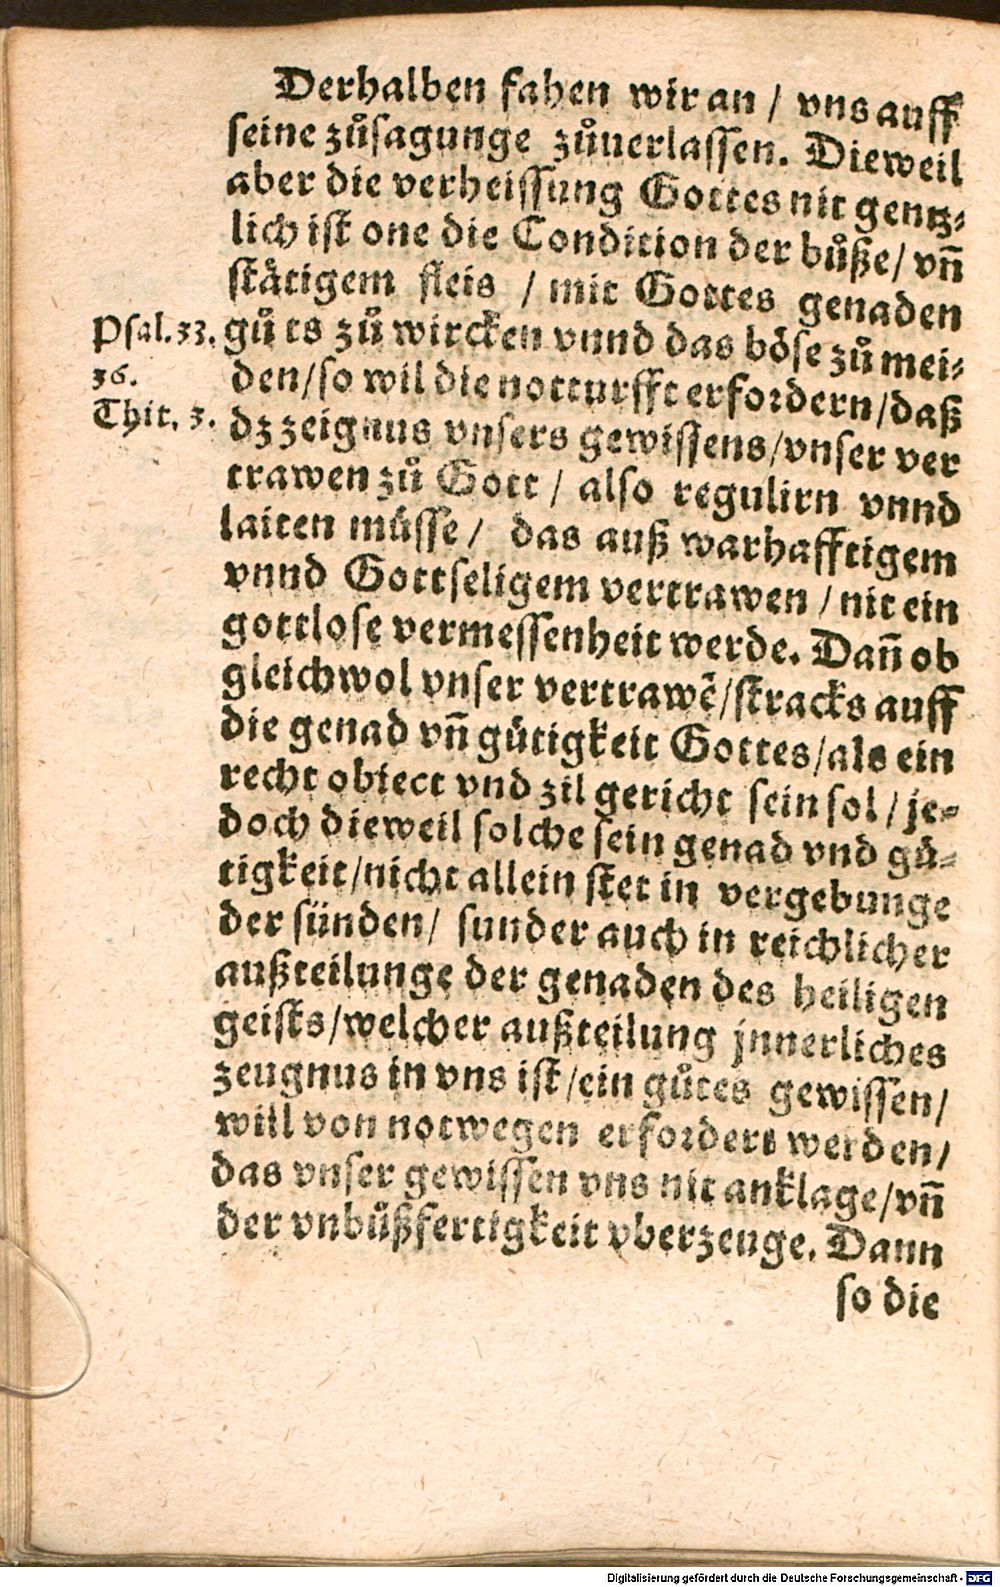 Derhalben fahen wir an / vns auff
seine zůsagunge zůuerlassen. Dieweil
aber die verheissung Gottes nit gentz⸗
lich ist one die Condition der bůße / vñ
stätigem fleis / mit Gottes genaden
Psal. 33. gůts zů wircken vnnd das böse zů mei⸗
36. den / so wil die notturfft erfordern / daß
Thit. 3. dz zeignus vnsers gewissens / vnser ver
trawen zů Gott / also regulirn vnnd
laiten müsse / das auß warhafftigem
vnnd Gottseligem vertrawen / nit ein
gottlose vermessenheit werde. Dañ ob
gleichwol vnser vertrawẽ / stracks auff
die genad vñ gütigkeit Gottes / als ein
recht obiect vnd zil gericht sein sol / je⸗
doch dieweil solche sein genad vnd gü⸗
tigkeit / nicht allein stet in vergebunge
der sünden / sunder auch in reichlicher
außteilunge der genaden des heiligen
geists / welcher außteilung jnnerliches
zeugnus in vns ist / ein gůtes gewissen /
will von notwegen erfordert werden /
das vnser gewissen vns nit anklage / vñ
der vnbůßfertigkeit vberzeuge. Dann
so die
Digitalisierung gefördert durch die Deutsche Forschungsgemeinschaft - DFG